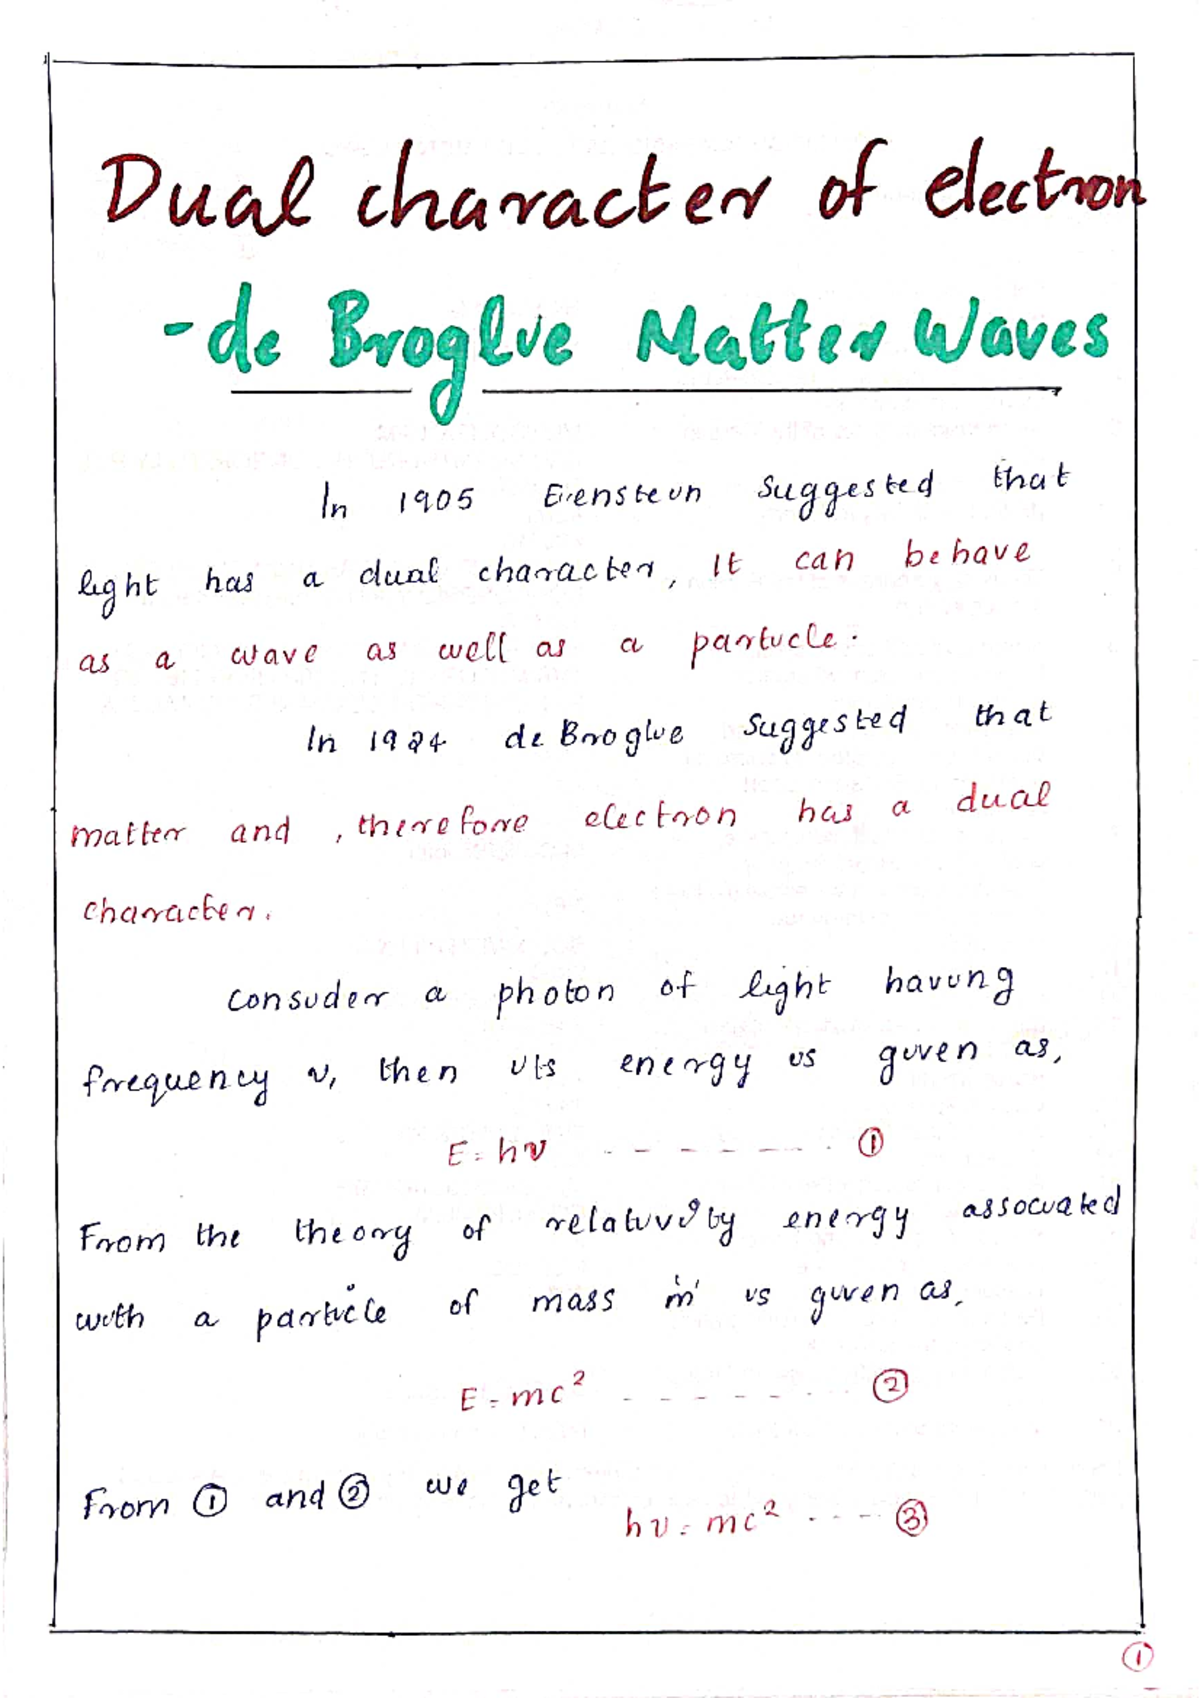 Dual character of electron
- de Broglie Matter Waves
In 1905 Eienstein suggested that
light has a dual character, It can behave
as a wave as well as a particle.
In 1924 de Broglie suggested that
matter and , therefore electron has a dual
character.
Consider a photon of light having
frequency ν, then its energy is given as,
E = hν - - - - - - - ①
From the theory of relativity energy associated
with a particle of mass 'm' is given as,
E = mc² - - - - - - - ②
From ① and ② we get
hν = mc² - - - - ③
①